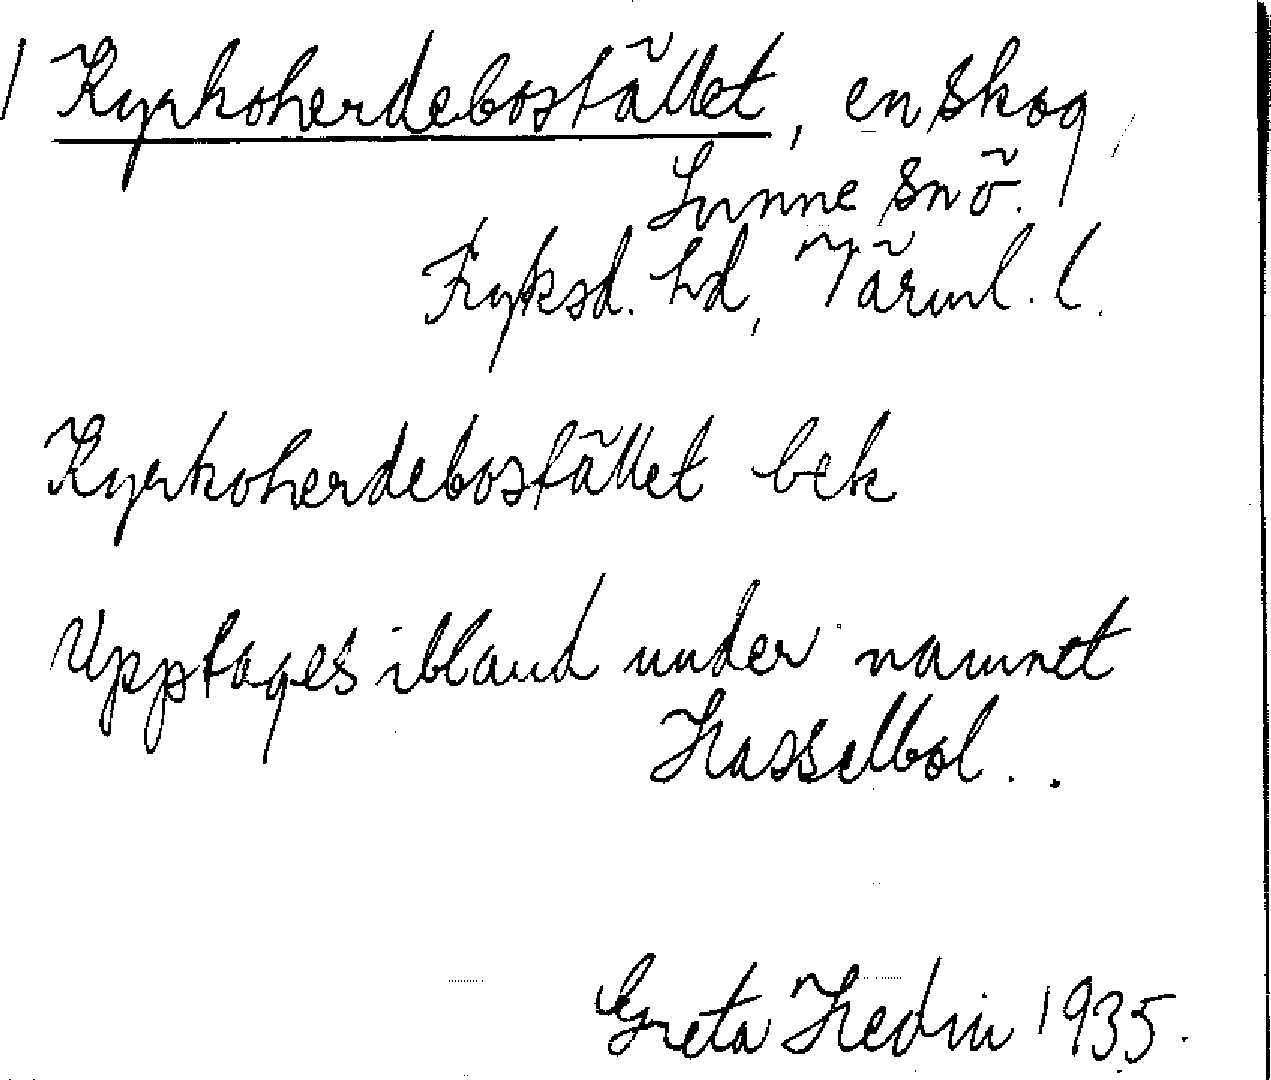 1 Kyrkoherdebostället, en skog,
Sunne snö.
Fryksd. hd, Värml. l.
Kyrkoherdebostället bek
Upptages ibland under namnet
Hasselbol..
Greta Hedin 1935.